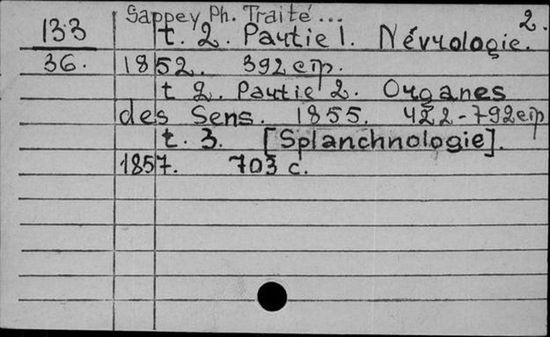 Sappey Ph. Traité ... 2.
133 t. 2. Partie 1. Névrologie.
36. 1852. 392 стр.
t 2. Partie 2. Organes
des Sens. 1855. 422-792 стр
t. 3. [Splanchnologie].
1857. 703 с.